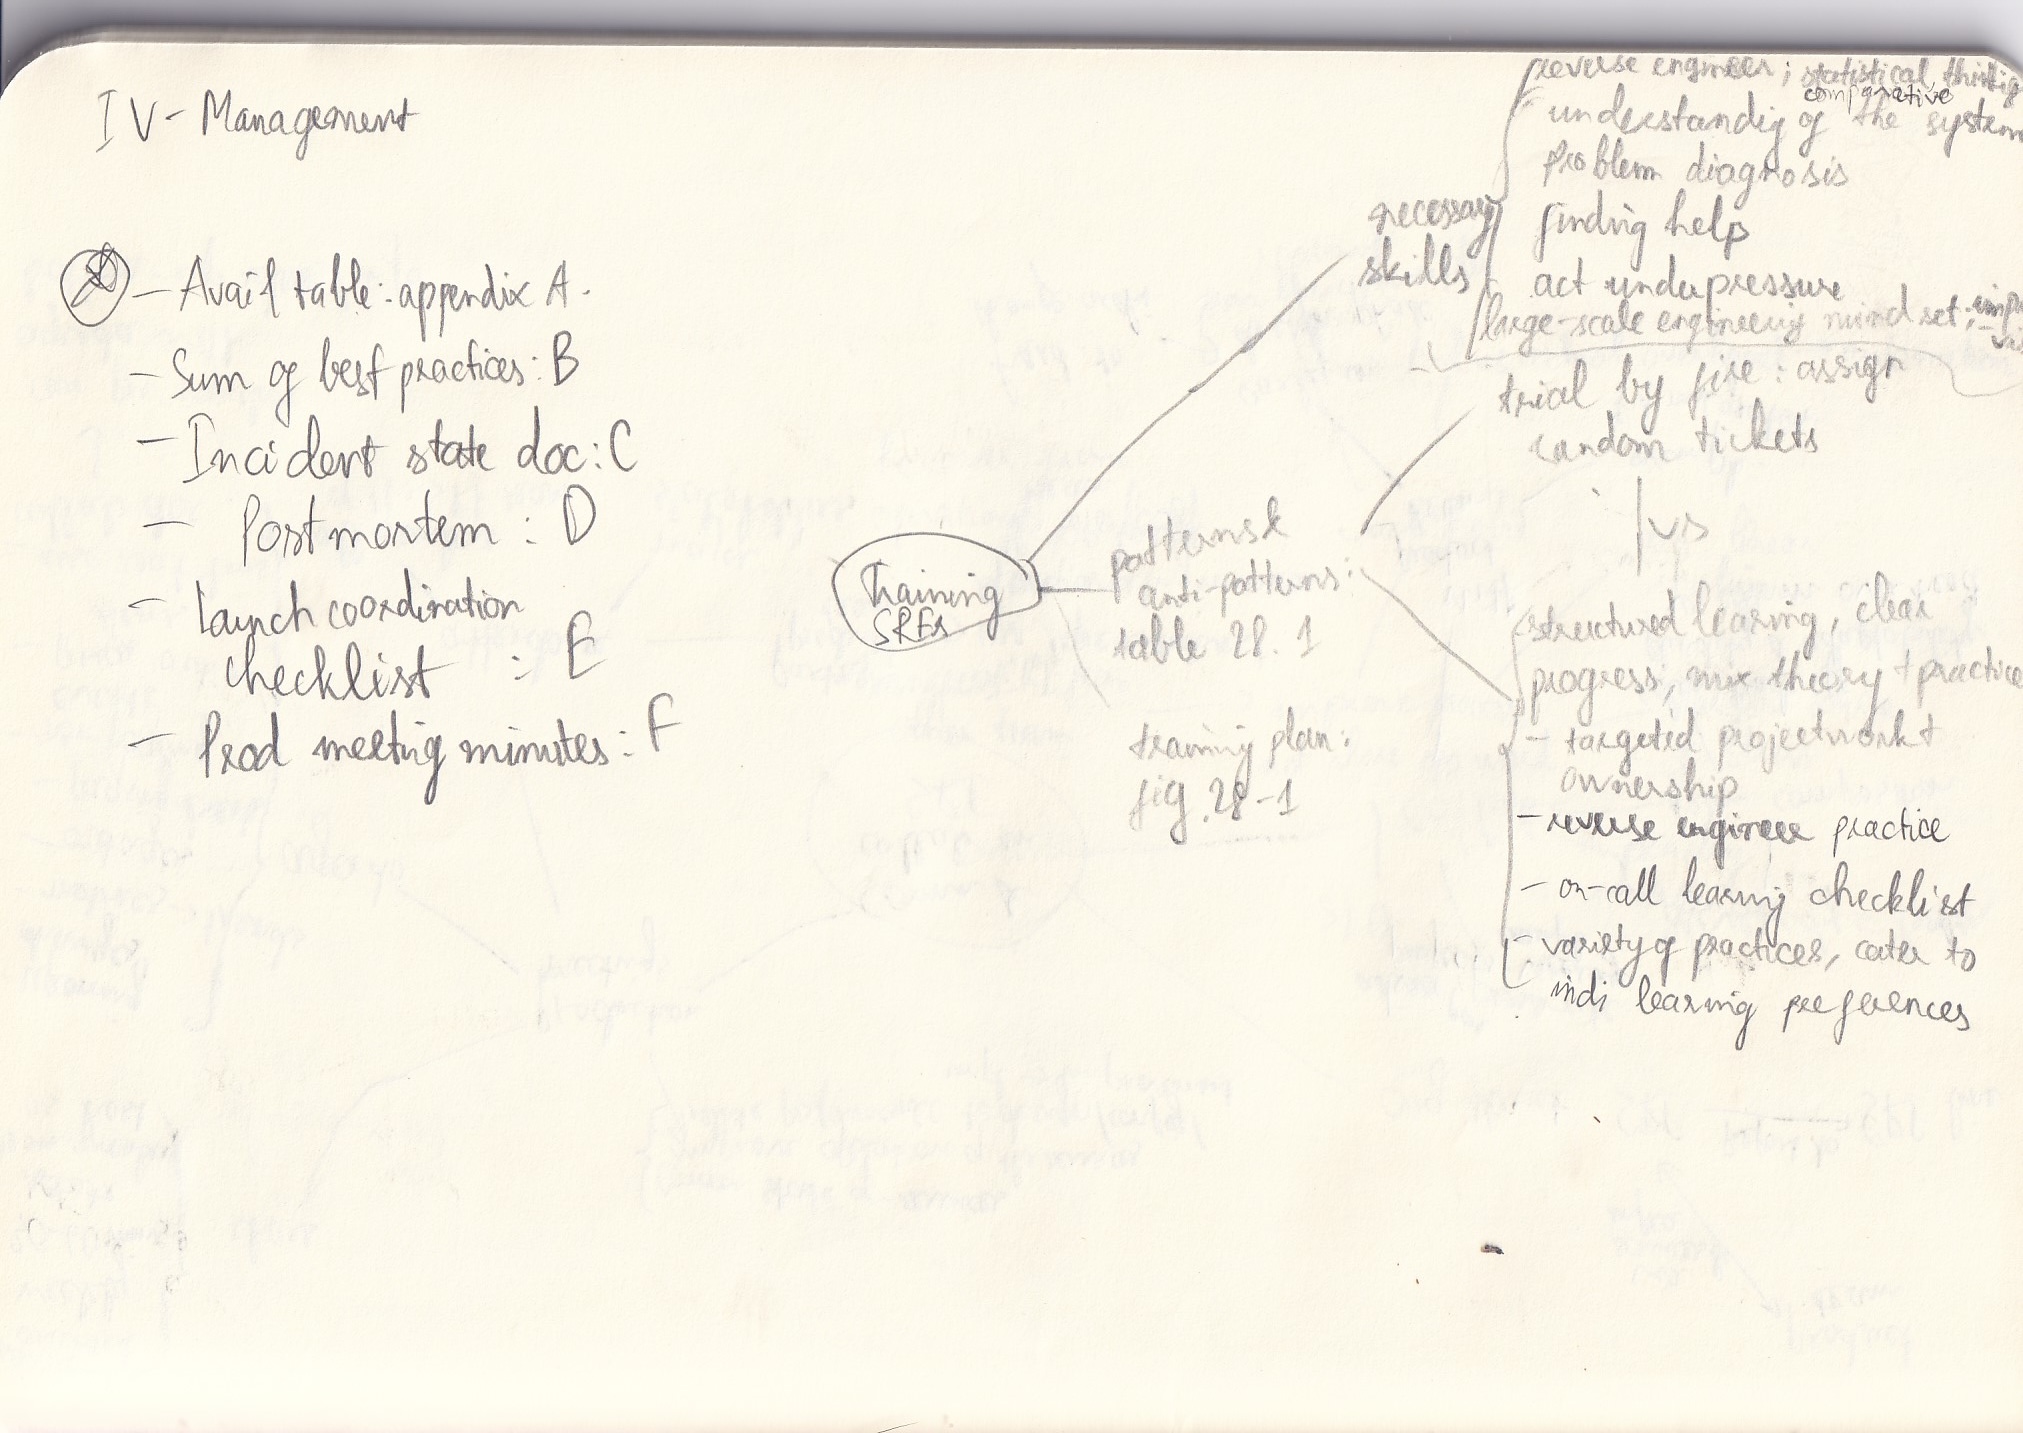 IV - Management
- Avail table: appendix A.
- Sum of best practices: B
- Incident state doc: C
- Postmortem : D
- launch coordination
checklist : E
- Prod meeting minutes: F
Training
SREs
necessary
skills
reverse engineer; statistical thinkig
comparative
understandig of the system
problem diagnosis
finding help
act under pressure
large-scale engineering mindset;
patterns &
anti-patterns:
table 28.1
trial by fire: assign
random tickets
vs
structured learing, clear
progress, mix theory + practice
- targeted project work +
ownership
- reverse engineer practice
- on-call learnig checklist
- variety of practices, cater to
indi learning preferences
training plan:
fig.28-1